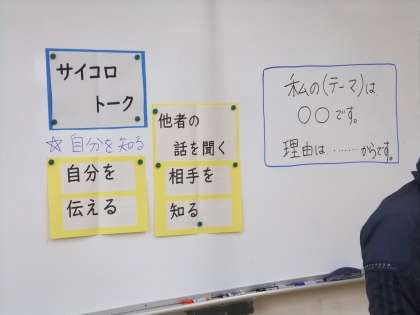 サイコロ
トーク
☆自分を知る
自分を
伝える
他者の
話を聞く
相手を
知る
私の(テーマ)は
〇〇です。
理由は………からです。